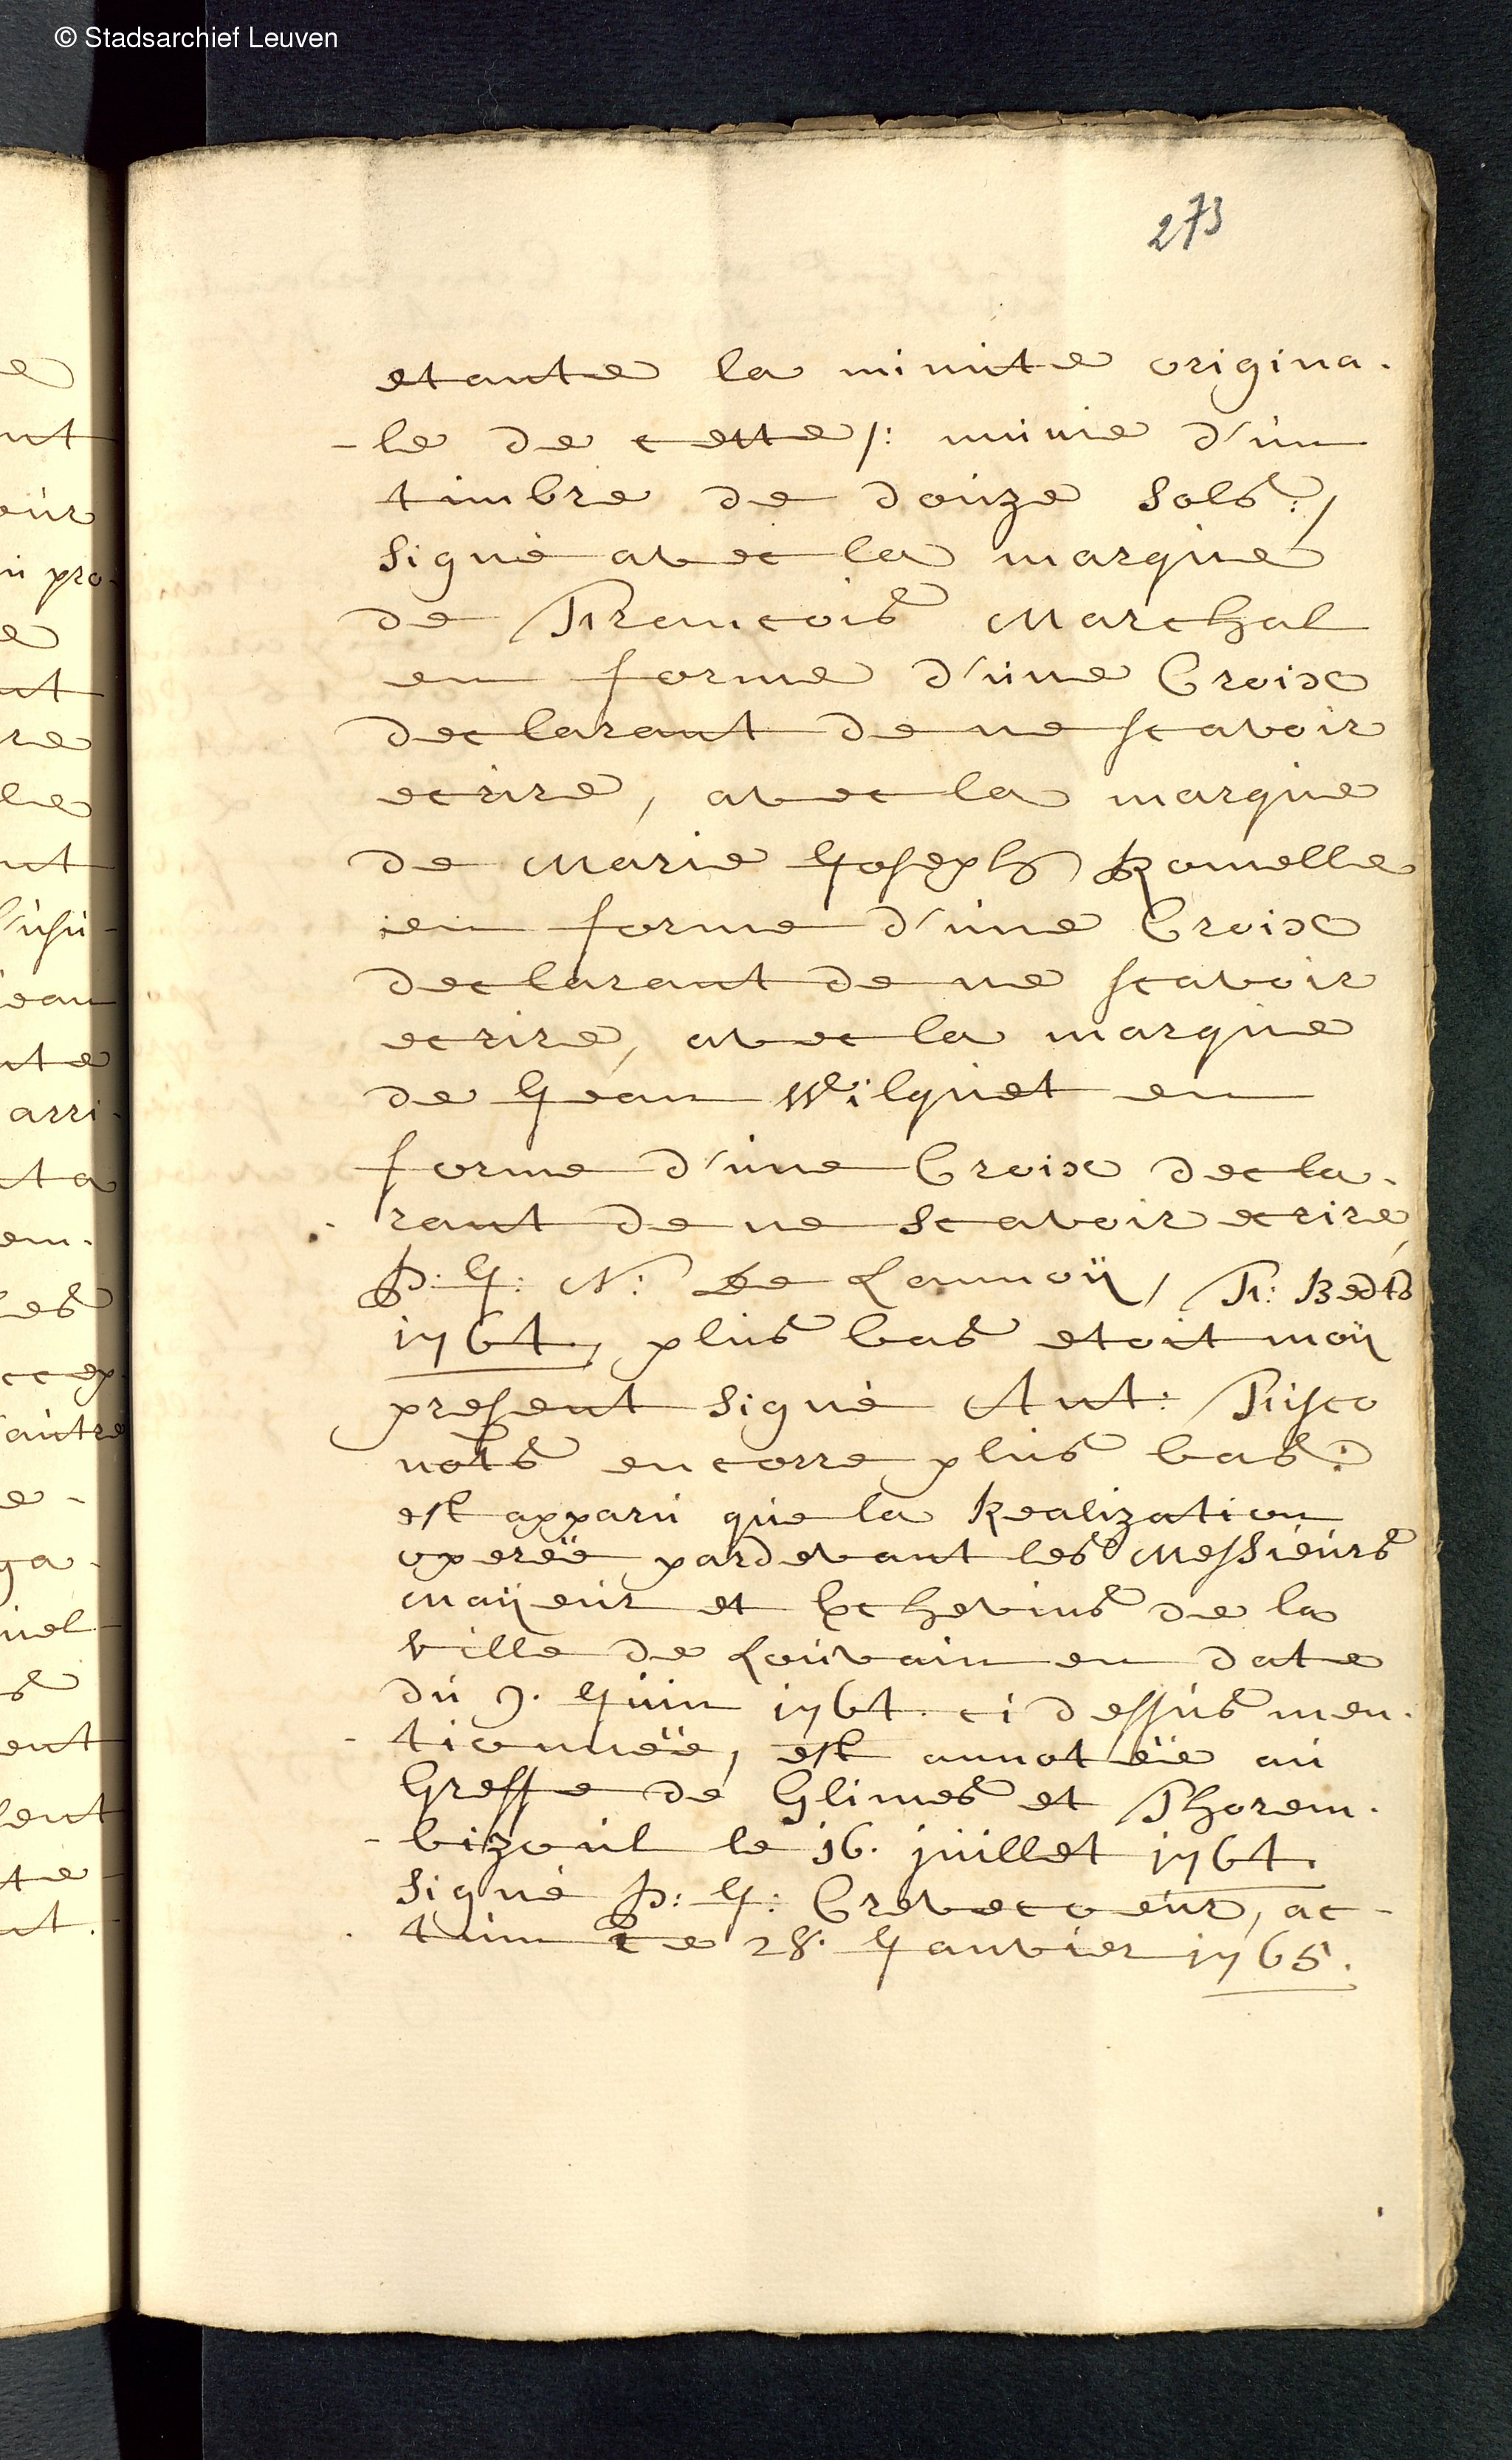 © Stadsarchief Leuven
273
etante la minute origina-
-le de cette /: munie d'un
timbre de douze sols :/
signé avec la marque
de François Marchal
en forme d'une Croix
declarant de ne scavoir
ecrire, avec la marque
de Marie Joseph Romelle
en forme d'une Croix
declarant de ne scavoir
ecrire, avec la marque
de Jean Wilquet en
forme d'une Croix decla-
-rant de ne scavoir ecrire,
P: J: N: De Lannoÿ, Fr:
1764, plus bas etoit moÿ
present signé Ant:
nots encorre plus bas :
est apparu que la Realization
operéé pardevant les Messieurs
Maÿeur et Echevins de la
ville de Louvain en date
du 9. Juin 1764. ci dessus men-
-tionnéé, est annotéé au
Greffe de Glimes et Thorem-
-bizoul le 16. juillet 1764.
signé P: J: Crevecoeur, ac-
-tum ce 28. Janvier 1765.